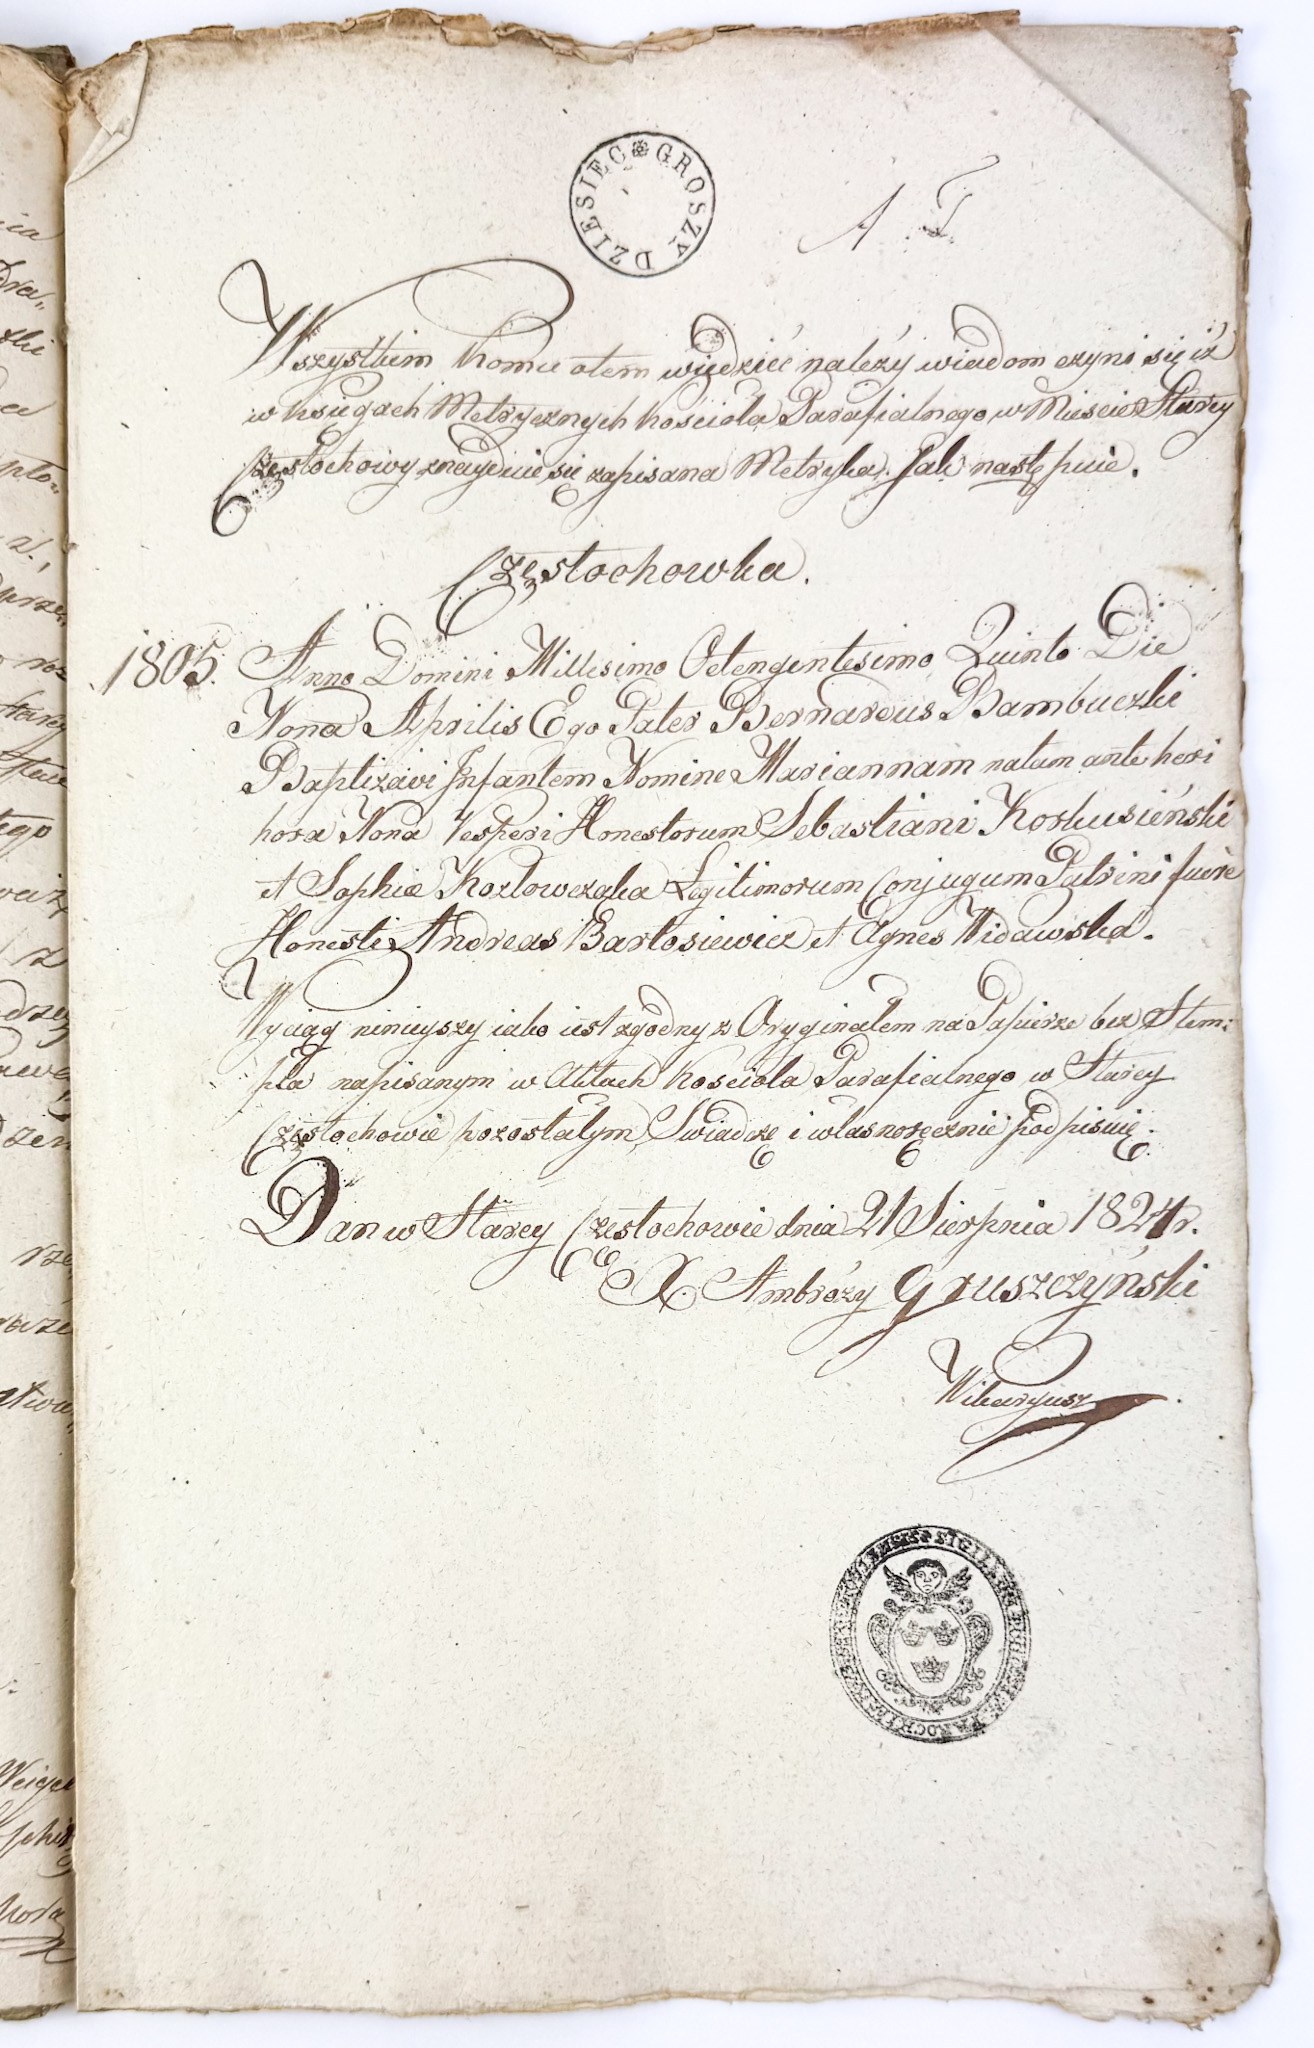 DZIESIĘC GROSZY
A T
Wszystkim komu otem wiedzieć należy wiadom czyni się iż
w księgach Metrycznych kościoła Parafialnego w Mieście Starey
Częstochowy znayduie się zapisana Metryka. Jak następuie.
Częstochowka.
1805. Anno Domini Millesimo Octengentesimo Quinto Die
Nona Aprilis Ego Pater Bernardus Bambuczki
Baptizavi Infantem Nomine Mariannam natam ante heri
hora Nona Vesperi Honestorum Sebastiani Korkusieński
et Sophiæ Kozłowczaka Legitimorum Conjugum Patrini fuere
Honesti Andreas Bartosiewicz et Agnes Widawska.
Wyciąg ninieyszy iako iest zgodny z Oryginałem na Papierze bez Stem:
pla napisanym w Aktach kościoła Parafialnego w Starey
Częstochowie pozostałym, Świadczę i własnoręcznie podpisuię.
Dan w Starey Częstochowie dnia 21 Sierpnia 1824 r.
X. Ambroży Gruszczyński
Wikaryusz